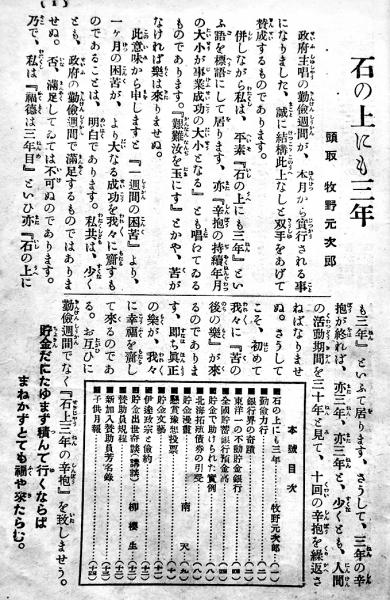 (1)
石の上にも三年
頭取 牧野元次郎
政府主唱の勤儉週間が、本月から實行される事
になりました。誠に結構此上なしと双手をあげて
賛成するものであります。
併しながら私は、平素『石の上にも三年』とい
ふ語を標語にして居ります、亦『辛抱の持續年月
の大小が事業成功の大小となる』とも唱わてゐる
ものであります。『艱難汝を玉にす』とかや、苦が
なければ樂は來りませぬ。
此意味から申しますと『一週間の困苦』よりも、
一ヶ月の困苦が、より大なる成功を我々に齎すも
のであることは、明白であります。私共は、少く
とも、政府の勤儉週間で滿足するものではありま
せぬ。否、滿足してゐては不可ぬのであります。
乃で、私は『福德は三年目』といひ亦『石の上に
も三年』といふて居ります。さうして、三年の辛
抱が終れば、亦三年、亦三年と、少くとも、人間
の活動期間を三十年と見て、十回の辛抱を繰返さ
ねばなりませ
ぬ。さうして
こそ、初めて
我々に『苦の
後の樂』が來
るのでありま
す、即ち眞正
の樂が、我々
に幸福を齎し
て來るのであ
る。お互ひに
勤儉週間でなく『石上三年の辛抱』を致しませう。
貯金だにたゆまず積んで行くならば
まねかずとても福や來たらむ。
本號目次
■石の上にも三年 牧野元次郎…(一)
■勤儉力行
■銀行界の奇蹟
■東洋一の不動貯金銀行
■全國貯蓄銀行預金高
■貯金で助けられた實例
■北海拓殖債券の引受
■貯金漫畫 南天
■懸賞豫想投票
■貯金文藝
■伊達政宗と儉約
■貯金出世奇談(講談) 柳櫻生
■賛助員規程
■新加入賛助員芳名錄
■子供月報